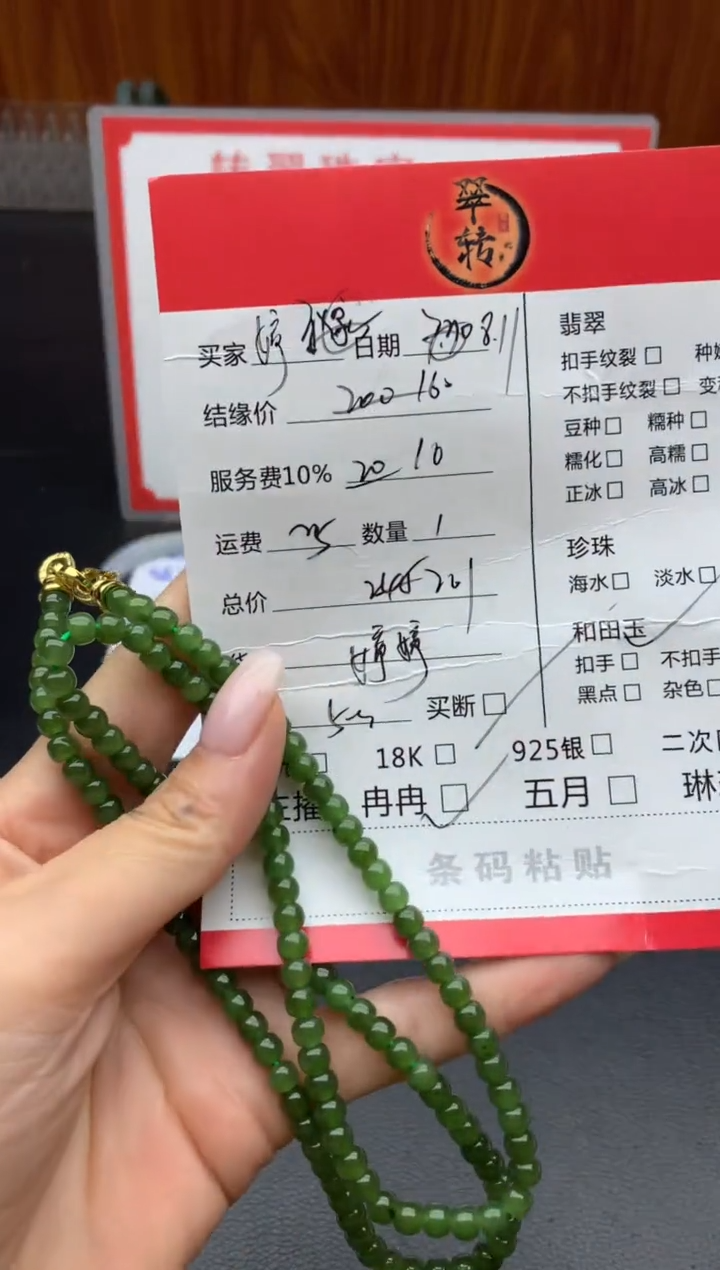 翠
转
买家 婷 日期 8.11
结缘价 200 160
服务费10% 20 10
运费 数量 1
总价
婷婷
买断 □
18K □ 925银 □ 二次
冉冉 □ 五月 □ 琳
条码粘贴
翡翠
扣手纹裂 □ 种
不扣手纹裂 □ 变
豆种 □ 糯种 □
糯化 □ 高糯 □
正冰 □ 高冰 □
珍珠
海水 □ 淡水 □
和田玉
扣手 □ 不扣手
黑点 □ 杂色 □